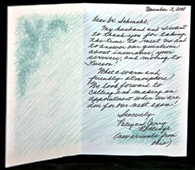 November 3, 2008
Dear Dr. Schmahl,
My husband and I want
to thank you for taking
the time to meet us and
to answer our questions
about insurance, your
services, and moving to
Tucson!
What a warm and
friendly atmosphere!
We look forward to
calling and making an
appointment when we are
due for our next exam!
Sincerely,
(now
Ohio)